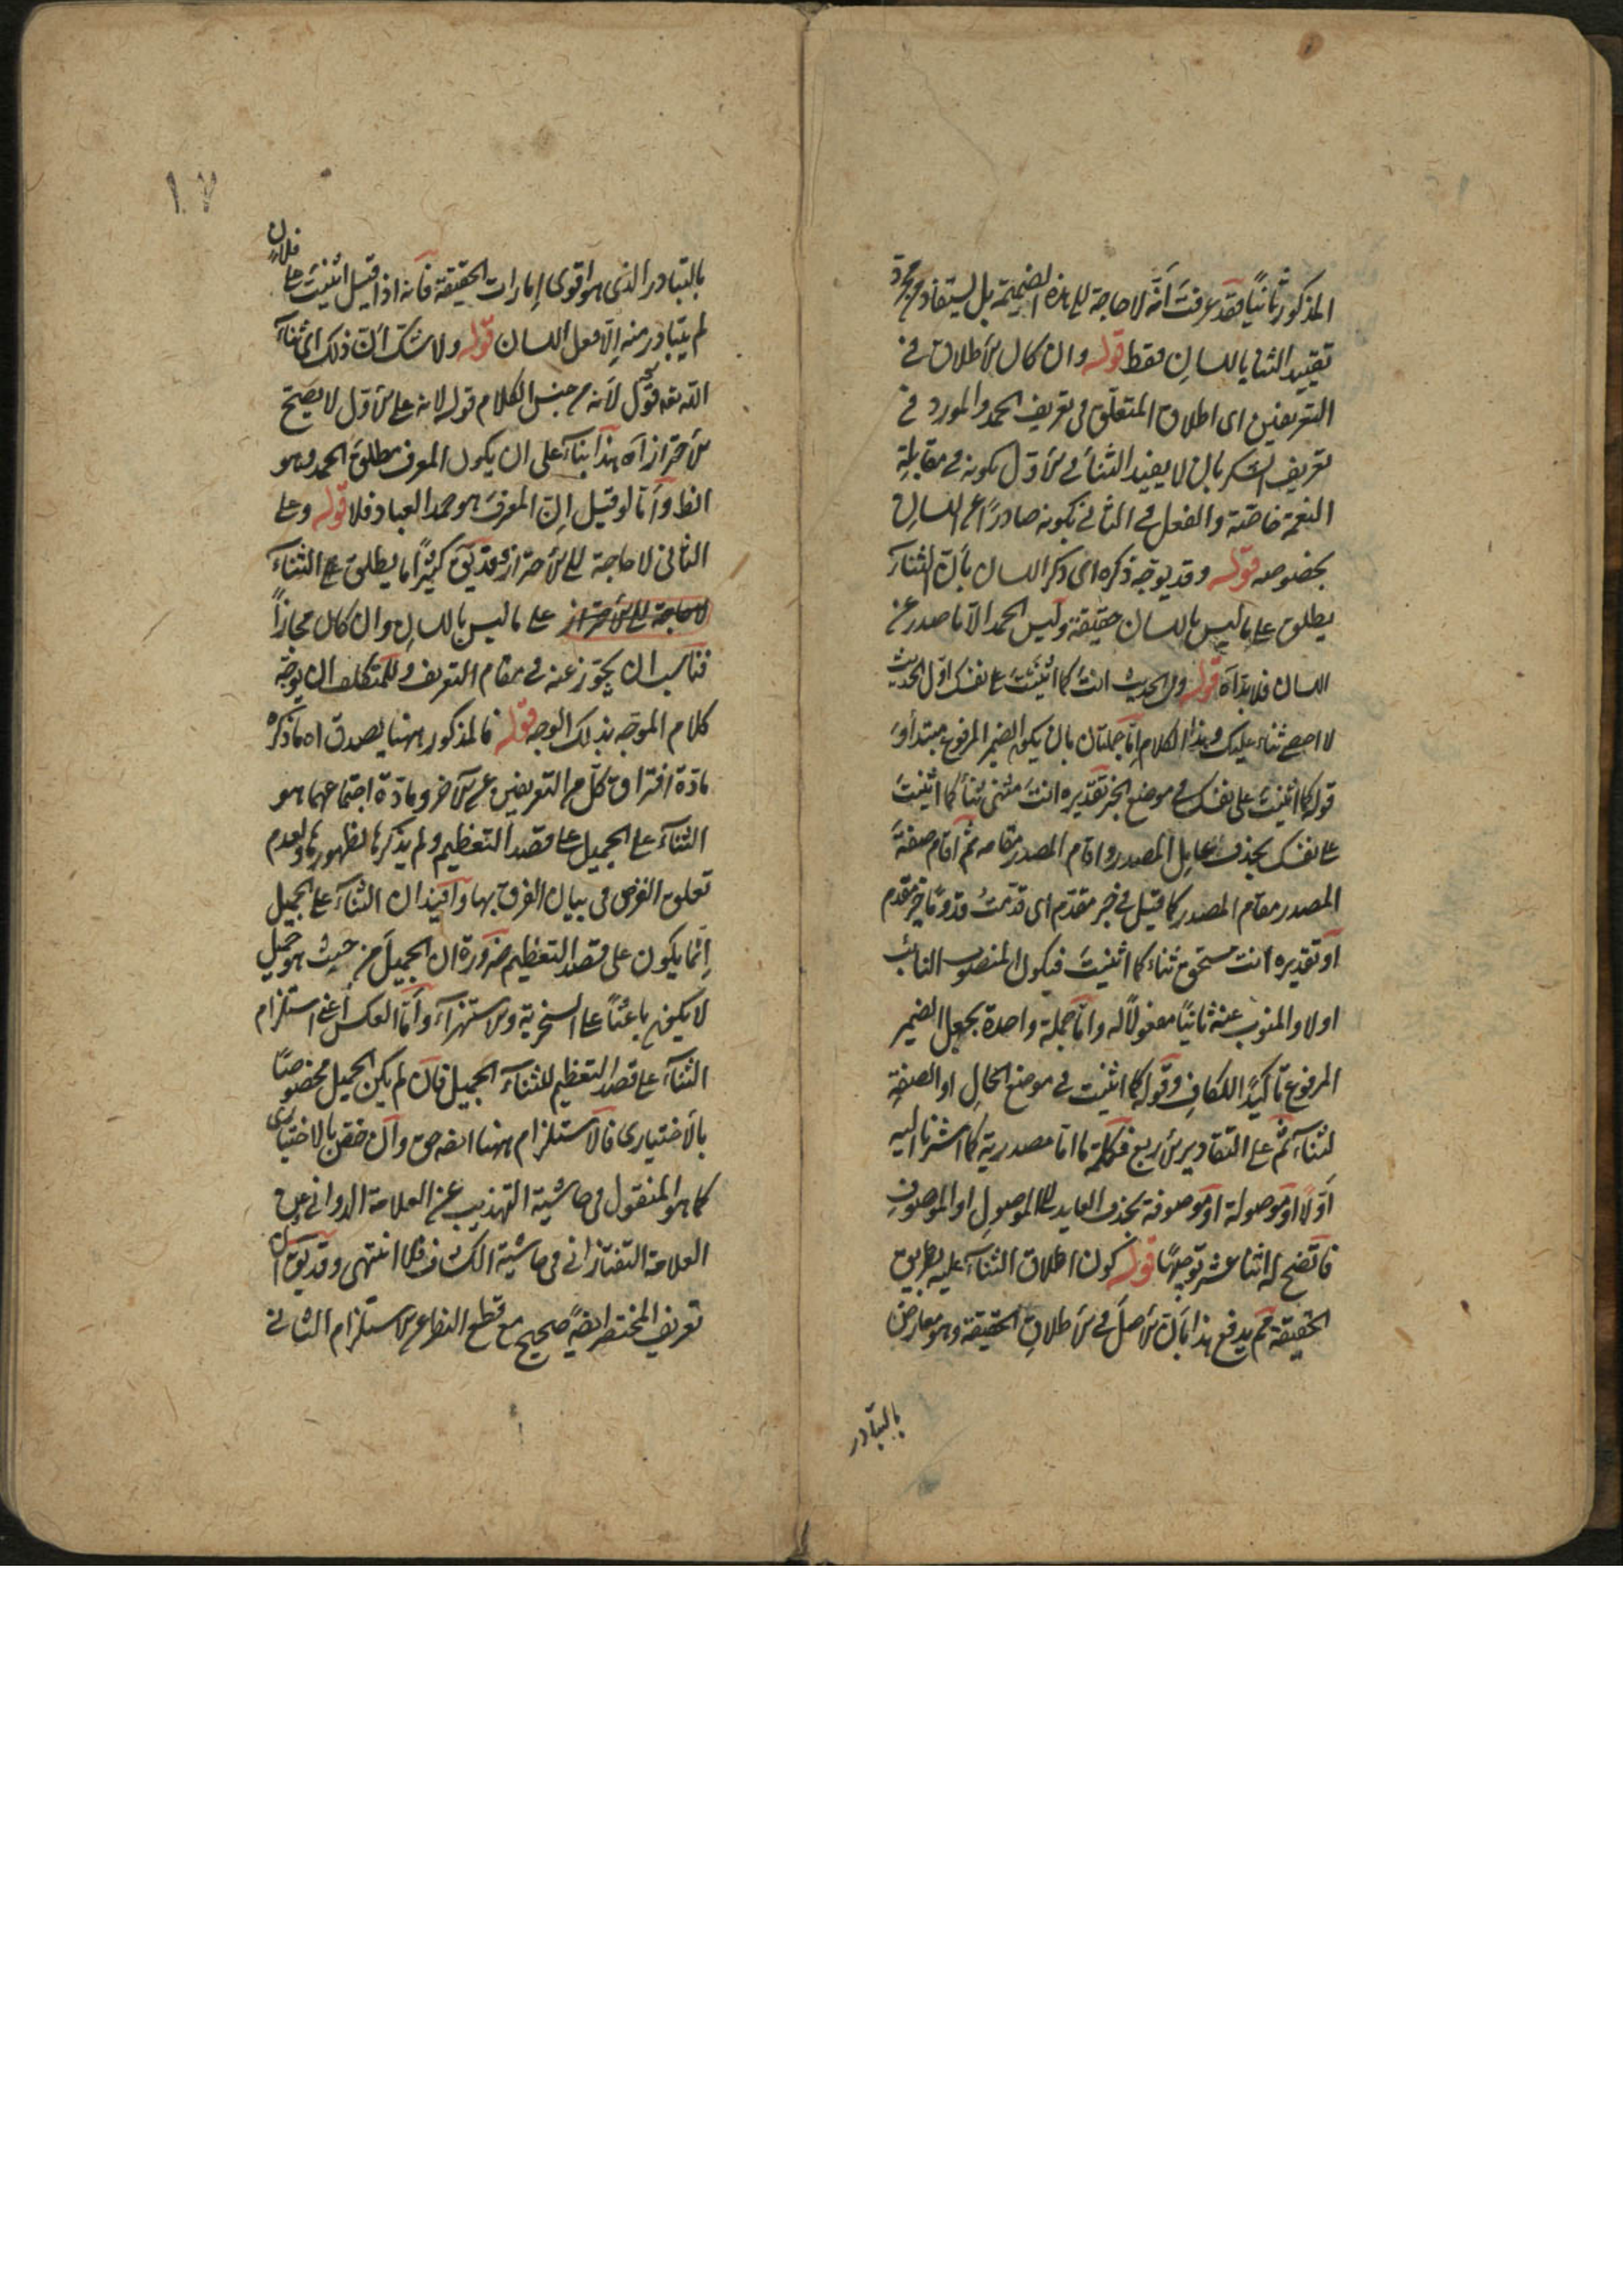 المذكور ثانيًا فقد عرفت أنّه لا حاجة الى هذه الضميمة بل يستفاد من مجرد
تقييد الثنا باللسان فقط قوله وان كان الأطلاق في
التعريفين اى اطلاق المتعلق فى تعريف الحمد والمورد في
تعريف الشكر بان لا يقيد الثناء في الأول بكونه في مقابلة
النعمة خاصّة والفعل في الثاني بكونه صادرًا عن اللسان
بخصوصه قوله وقد يوجّه ذكره اى ذكر اللسان بأن الثناء
يطلق على ما ليس باللسان حقيقة وليس الحمد الّا ما صدر عن
اللسان فلا بد اه قوله وفى الحديث انت كما اثنيت على نفسك اوّل الحديث
لا احصى ثناء عليك وهذا الكلام امّا جملتان بان يكون الضمير المرفوع مبتدأ و
قوله كما اثنيت على نفسك في موضع الخبر تقديره انت مثنى ثناءً كما اثنيت
على نفسك بحذف عامل المصدر واقام المصدر مقامه ثم أقام صفة
المصدر مقام المصدر كما قيل في خبر مقدّم اى قدّمت قدومًا خير مقدم
أو تقديره انت مستحق ثناء كما اثنيت فيكون المنصوب النائب
اولا والمنوب عنه ثانيًا مفعولًا له وامّا جملة واحدة بجعل الضمير
المرفوع تأكيدًا للكاف وقوله كما اثنيت في موضع الحال او الصفة
لثناء ثم على التقادير الأربع فكلمة ما امّا مصدرية كما اشرنا اليه
أوّلًا او موصولة او موصوفة بحذف العايد الى الموصول او الموصوف
فاتضح له اثنا عشر توجيهًا قوله كون اطلاق الثناء عليه بطريق
الحقيقة ثم يدفع هذا بأن الأصل في الأطلاق الحقيقة وهو معارض
بالتبادر
١٧
بالتبادر الذى هو اقوى امارات الحقيقة فأنه اذا قيل اثنيت على فلان
لم يتبادر منه الّا فعل اللسان قوله ولا شك أنّ ذلك اى ثناء
الله تعه قول لأنه من جنس الكلام قوله لانه على الأول لا يصحّ
الأحتراز اه هذا بناء على ان يكون المعرف مطلق الحمد وهو
الظ وأمّا لو قيل إن المعرف هو حمد العباد فلا قوله وعلى
الثانى لا حاجة الى الأحتراز وقد يق كثيرًا ما يطلق على الثناء
لا حاجة الى الأحتراز على ما ليس باللسان وان كان مجازًا
فناسب ان يحترز عنه في مقام التعريف وللمتكلف ان يوجّه
كلام الموجّه بذلك الوجه قوله فالمذكور ههنا يصدق اه ما ذكره
مادّة افتراق كلّ من التعريفين عن الآخر ومادّة اجتماعهما هو
الثناء على الجميل على قصد التعظيم ولم يذكرها لظهورها ولعدم
تعلق الغرض فى بيان الفرق بها وأفيد ان الثناء على الجميل
إنّما يكون على قصد التعظيم ضرورة ان الجميل من حيث هو جميل
لا يكون باعثًا على السخرية والاستهزاء وأمّا العكس أعني استلزام
الثناء على قصد التعظيم للثناء الجميل فان لم يكن الجميل مخصوصًا
بالأختيارى فالاستلزام ههنا ايضه حق وان خصّ بالاختيارى
كما هو المنقول فى حاشية التهذيب عن العلامة الدوانى عن
العلامة التفتازانى فى حاشية الكشاف فلا انتهى وقد يق ان
تعريف المختصر ايضه صحيح مع قطع النظر عن استلزام الثانى